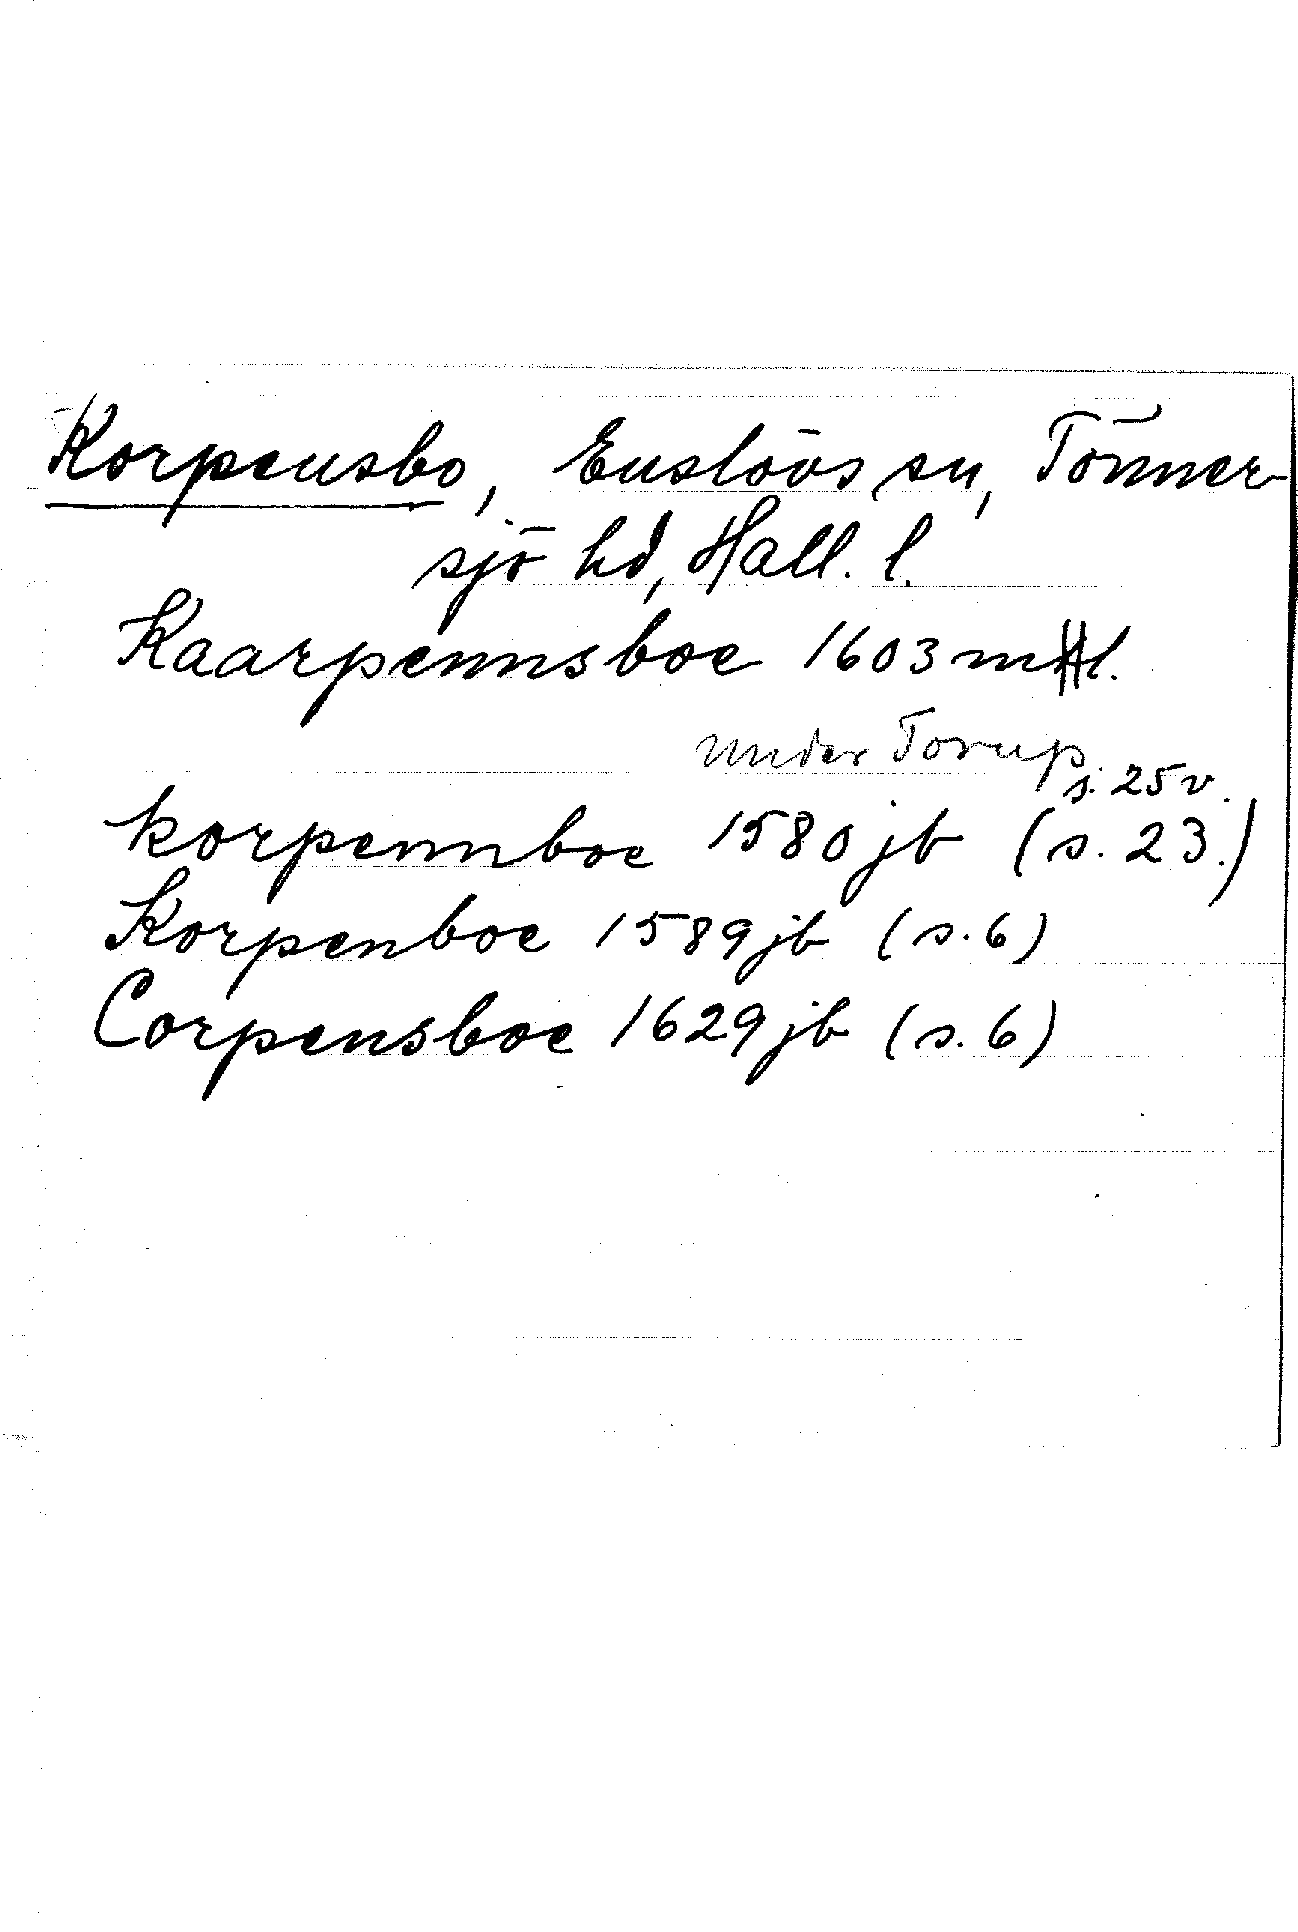 Korpensbo, Enslövs sn, Tönner-
sjö hd, Hall. l.
Kaarpennsboe 1603 mtl.
under Torup s. 25 v.
korpennboe 1580 jb (s. 23.)
Korpenboe 1589 jb (s. 6)
Corpensboe 1629 jb (s. 6)